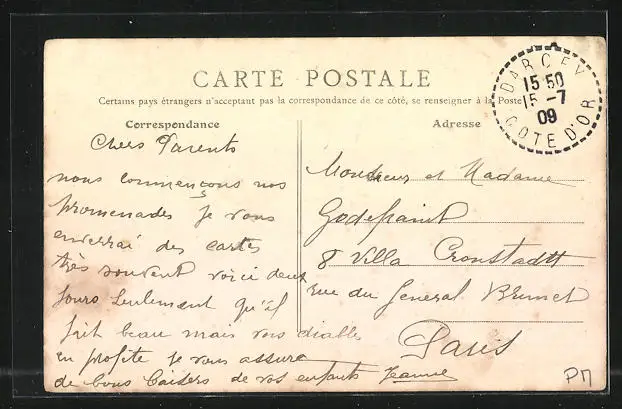 CARTE POSTALE
Certains pays étrangers n'acceptant pas la correspondance de ce côté, se renseigner à la Poste
Correspondance
Adresse
DARCEY
15 50
15 -7
09
COTE D'OR
Chers Parents
nous commençons nos
promenades je vous
enverrai des cartes
très souvent voici deux
jours seulement qu'il
fait beau mais vos diables
en profite je vous assure
de bons baisers de vos enfants Jeanne
Monsieur et Madame
8 Villa Cronstadt
rue du General Brunet
Paris
PM